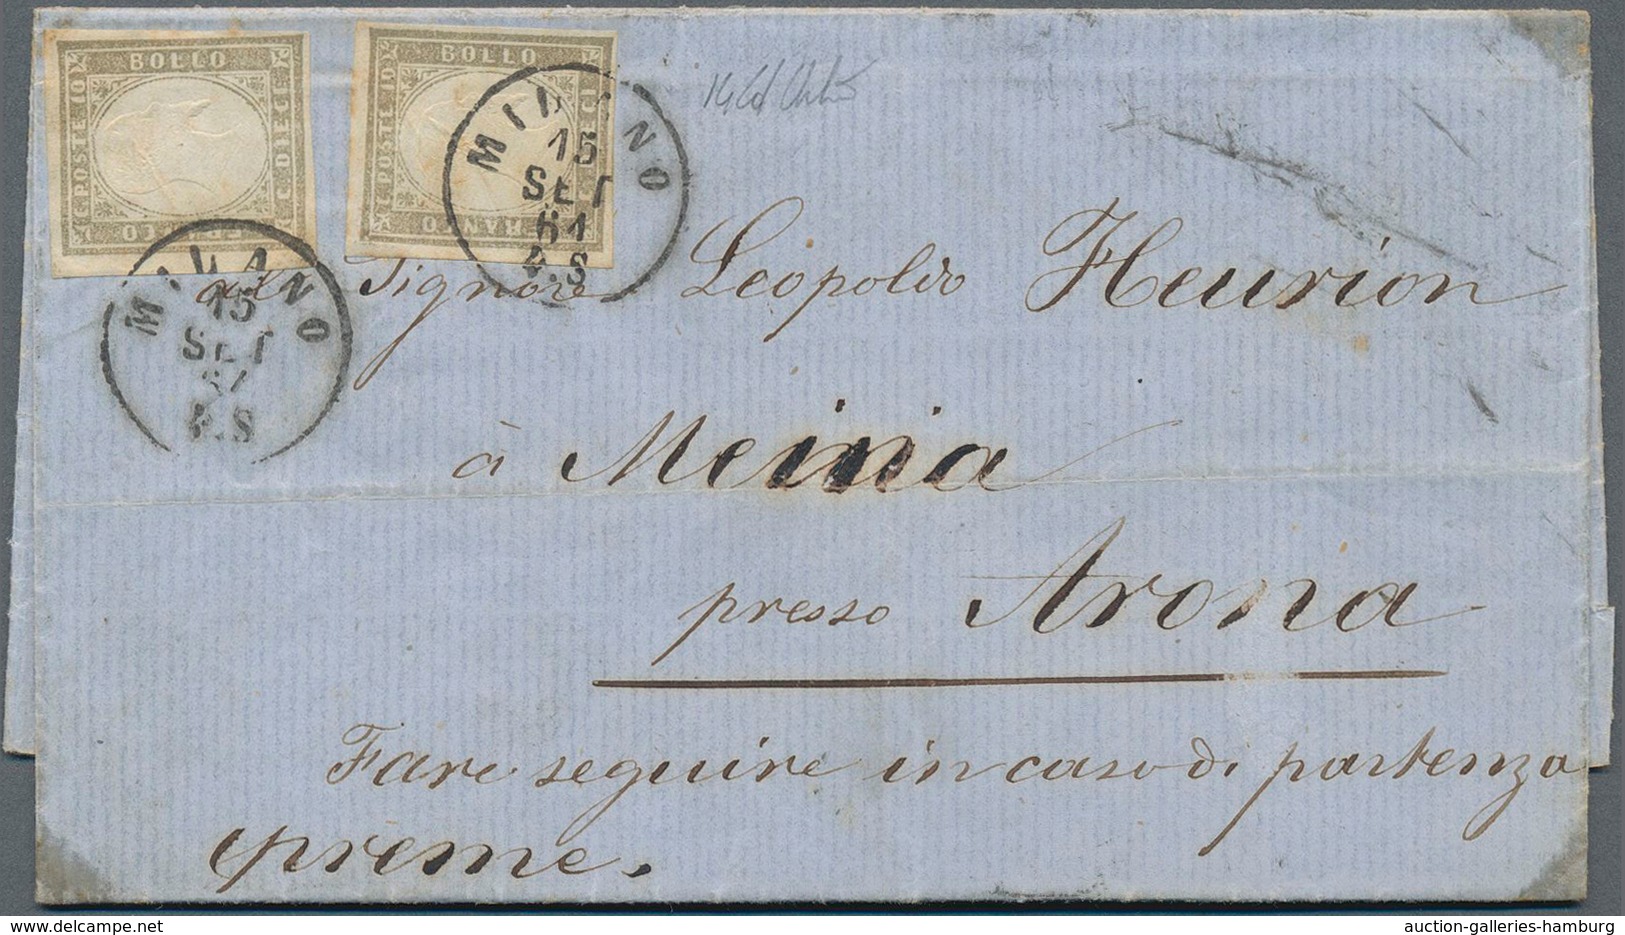 BOLLO
C. POSTE 10
C. DIECI
FRANCO
BOLLO
C. POSTE 10
FRANCO
MILANO
15
SET
61
4.S
MILANO
15
SET
61
4.S
al Signore Leopoldo Heurion
à Meina
presso Arona
Fare seguire in caso di partenza
preme.
delcampe.net
auction-galleries-hamburg